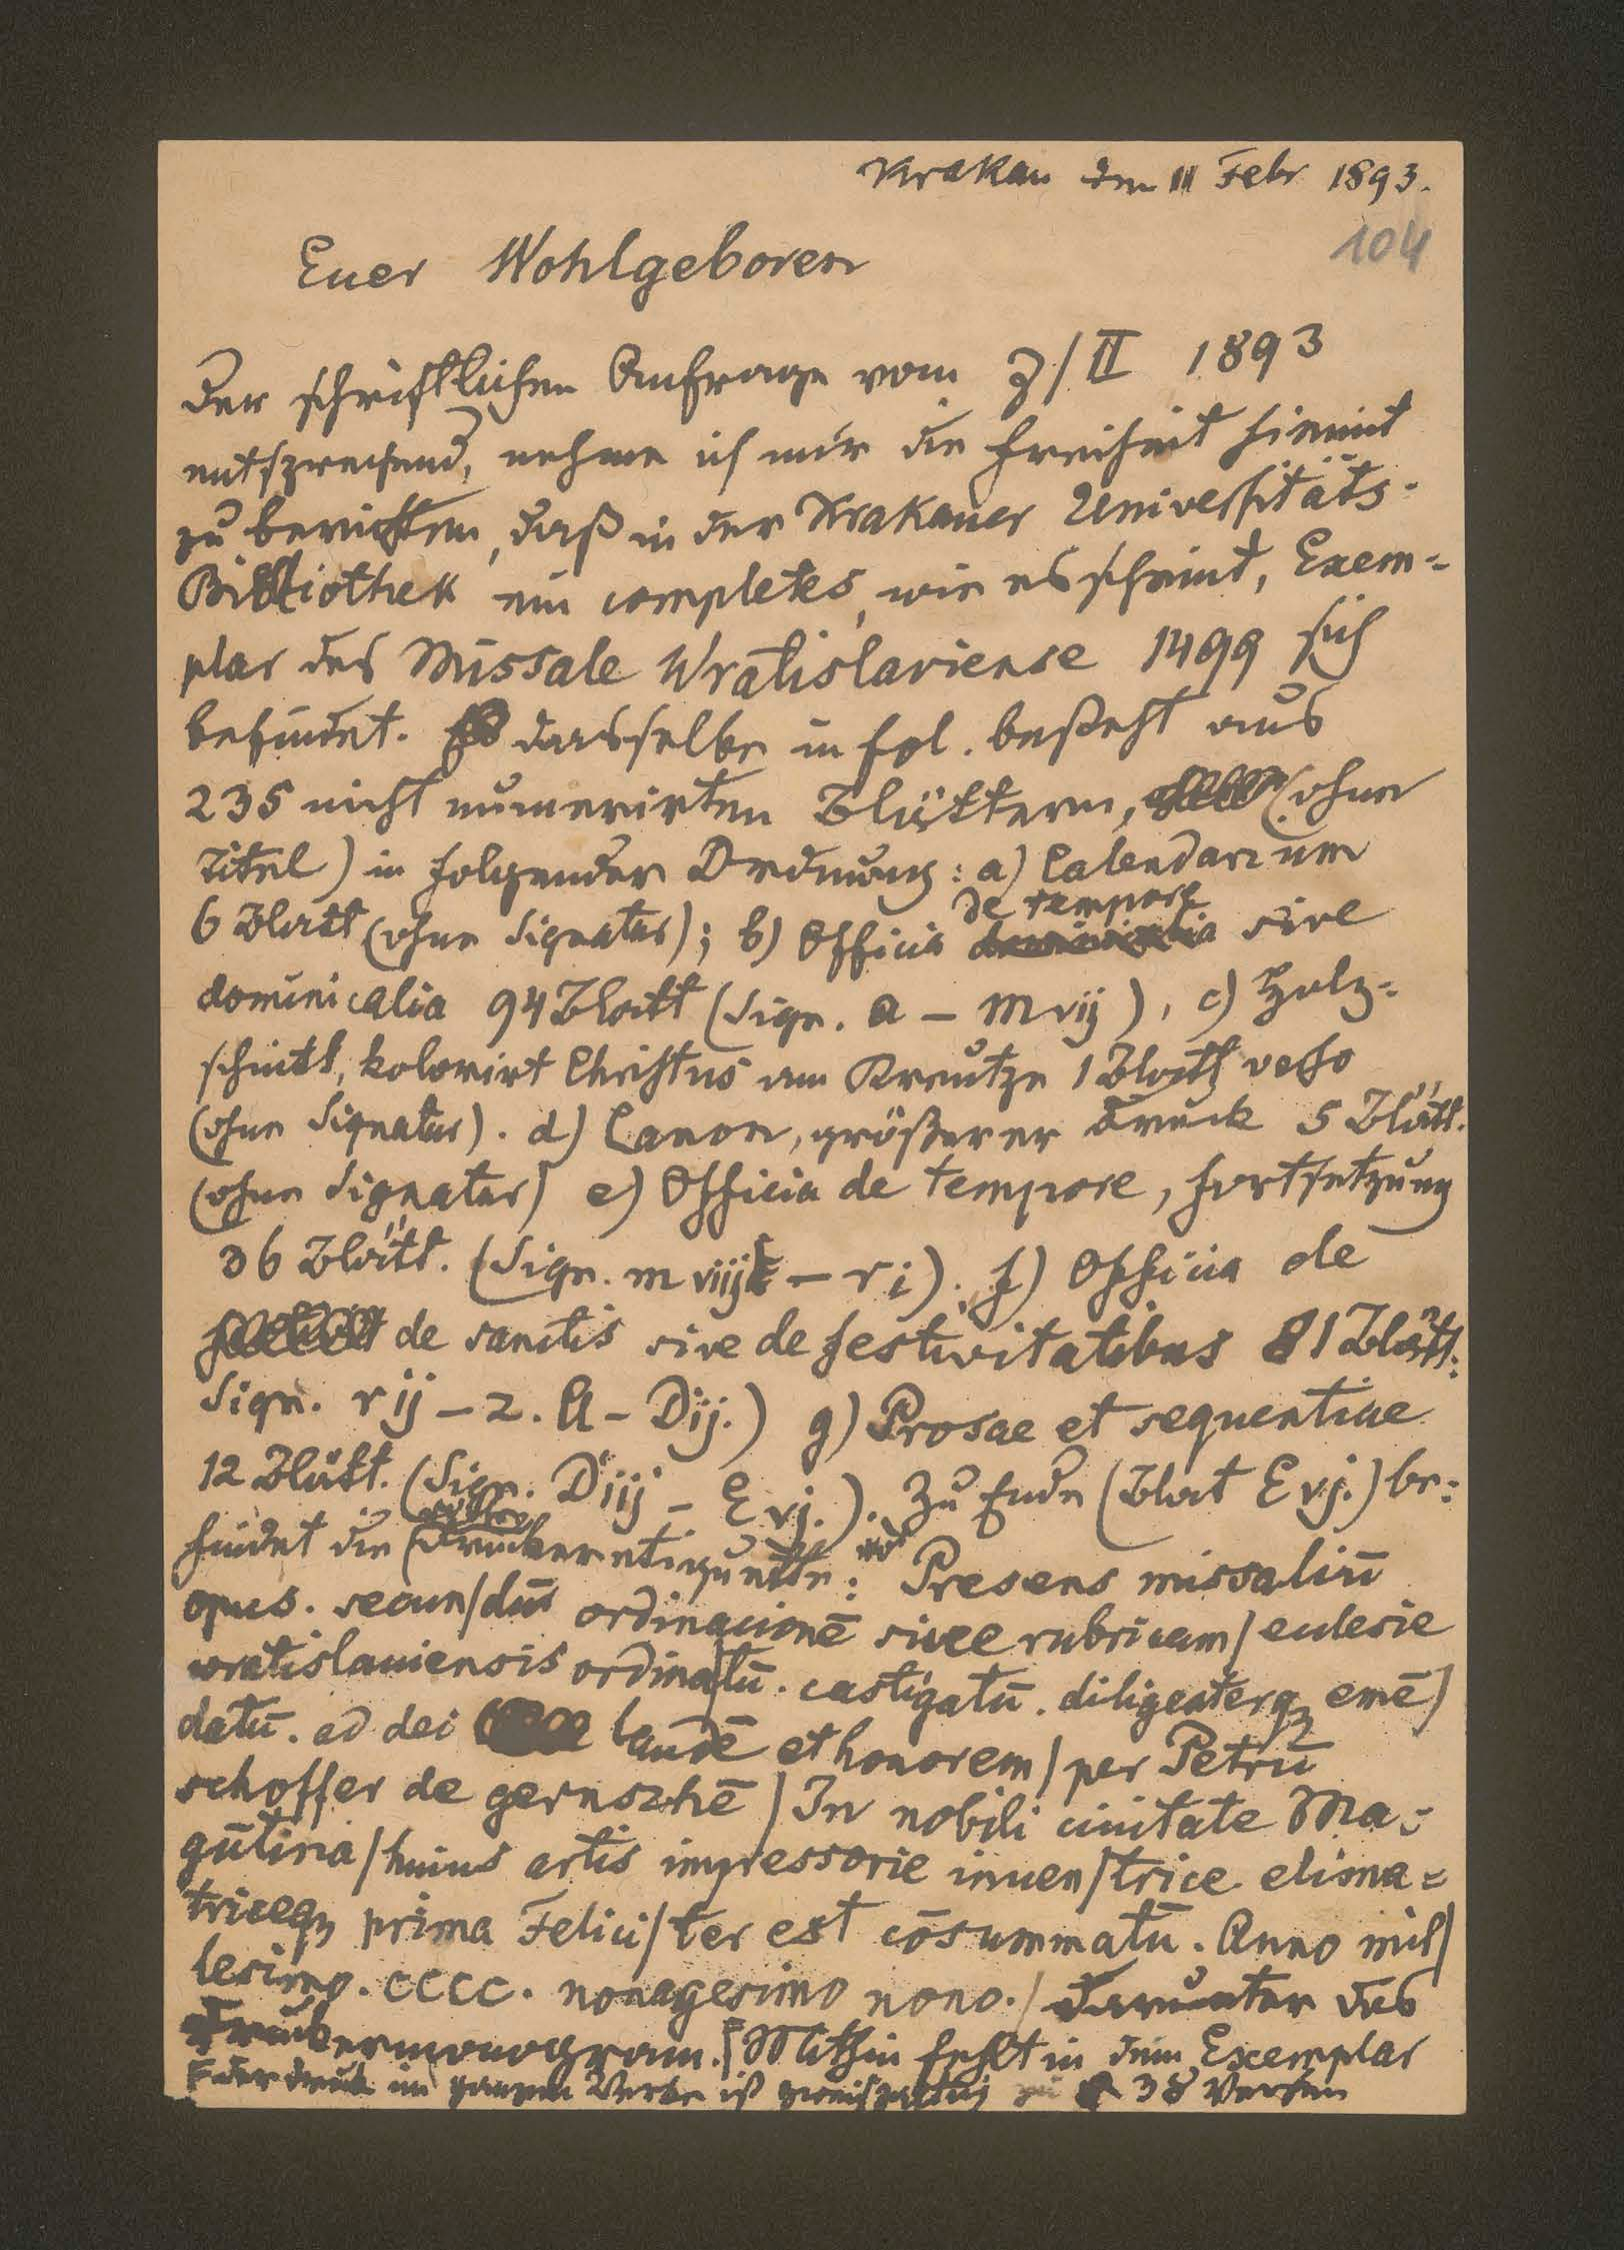 Krakau den 11 Febr 1893.
104
Euer Wohlgeboren
Der schriftlichen Anfrage vom 3/II 1893
entsprechend, nehme ich mir die Freiheit hiemit
zu berichten, daß in der Krakauer Universitäts-
Bibliothek ein completes, wie es scheint, Exem=
plar des Missale Wratislaviense 1499 sich
befindet. dasselbe in fol. besteht aus
235 nicht numerirten Blättern, (ohne
Titel) in folgender Ordnung: a) Calendarium
6 Blatt (ohne Signatur); b) Officia de tempore sive
dominicalia 94 Blatt (Sign. a – m vij), c) Holz=
schnitt, kolorirt Christus am Kreutze 1 Blatt verso
(ohne Signatur). d) Canon, größerer Druck 5 Blätt.
(ohne Signatur) e) Officia de tempore, Fortsetzung
36 Blätt. (Sign. m viij – r i). f) Officia de
de sanctis sive de festivitatibus 81 Blätt.
Sign. r ij – z. A – Dij.) g) Prosae et sequentiae
12 Blätt. (Sign. Diij – E vj.). Zu Ende (Blat E vj.) be=
findet die Druckeretiquette: Presens missaliū
opus. secun/dū ordinacionē siue rubricam / ecclesie
wratislauiensis ordina/tū. castigatū. diligenterqꝫ emē/
datū. ad dei laudē et honorem / per Petrū
schoffer de gernszhē / In nobili ciuitate Ma=
gūtina / huius artis impressorie inuen/trice elima=
triceqꝫ prima Felici/ter est cōsummatū. Anno mil/
lesimo. CCCC. nonagesimo nono. / darunter das
Druckermonogram. Mithin fehlt in dem Exemplar
der Druck im ganzen Werke ist zweispaltig zu 38 Versen